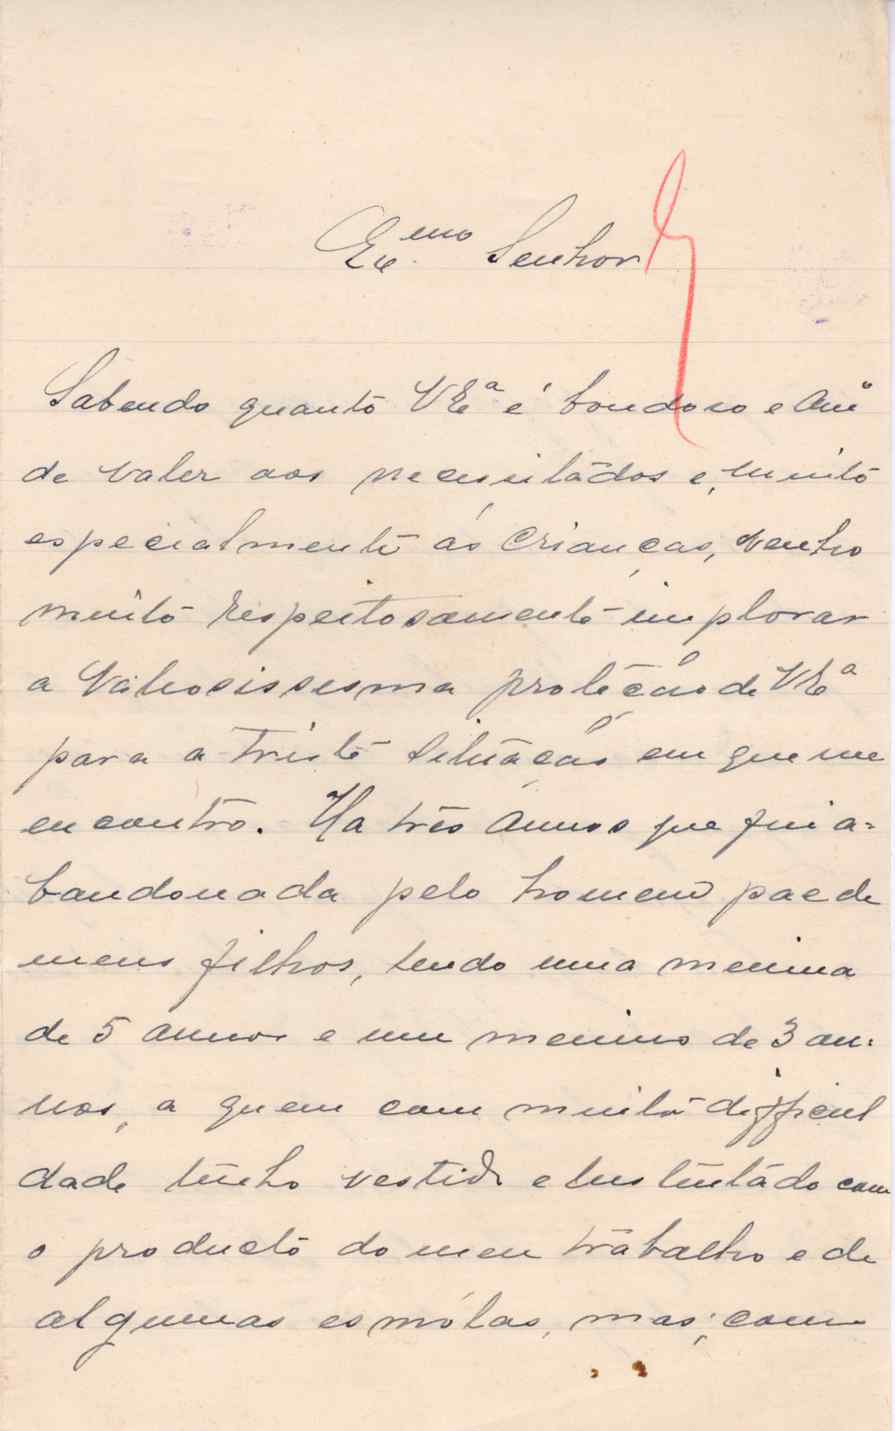 Exmo Senhor
Sabendo quanto V Exª é bondoso e
de valer aos necessitados e, muito
especialmente ás crianças, venho
muito respeitosamente implorar
a valiosissisma proteção de V Exª
para a triste situação em que me
encontro. Ha três annos que fui a=
bandonada pelo homem pae de
meus filhos, tendo uma menina
de 5 annos e um menino de 3 an=
nos, a quem com muita difficul
dade tenho vestido e sustentado com
o producto do meu trabalho e de
algumas esmólas, mas, com